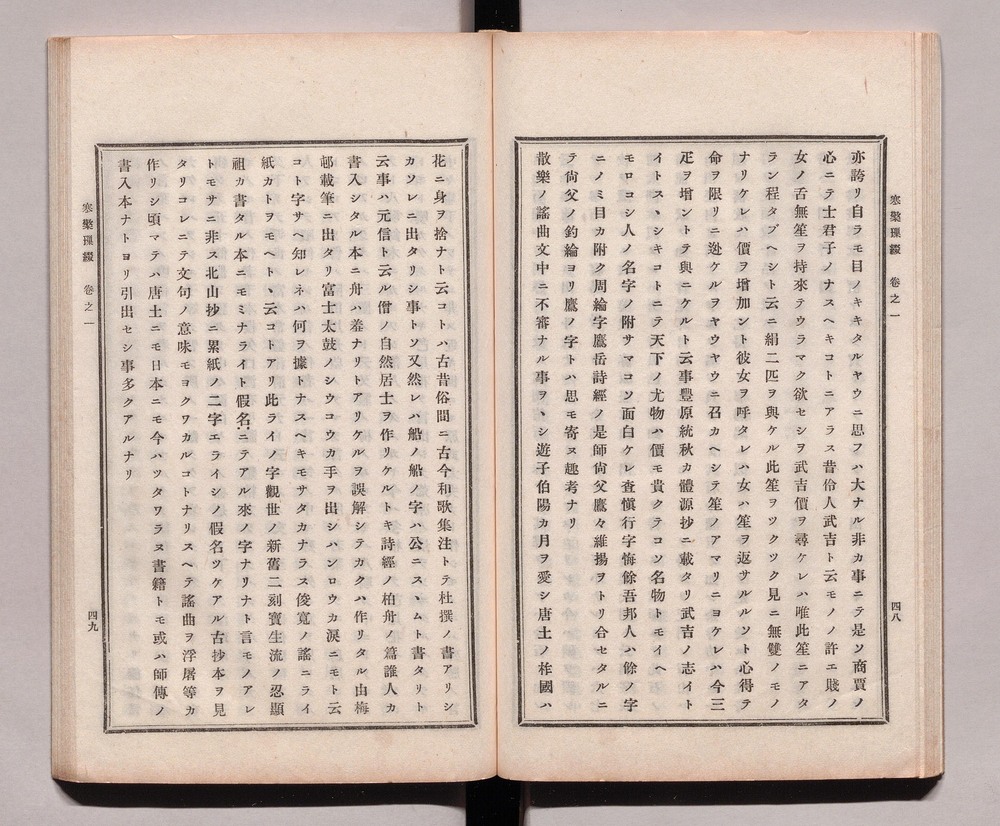 寒檠璅綴　卷之一
四八
亦誇リ自ラモ目ノキキタルヤウニ思フハ大ナル非カ事ニテ是ソ商賈ノ
心ニテ士君子ノナスヘキコトニアラス昔伶人武吉ト云モノノ許エ賤ノ
女ノ舌無笙ヲ持來テウラマク欲セシヲ武吉價ヲ尋ケレハ唯此笙ニアタ
ラン程タブヘシト云ニ絹二匹ヲ與ケル此笙ヲツクツク見ニ無雙ノモノ
ナリケレハ價ヲ增加ント彼女ヲ呼タレハ女ハ笙ヲ返サルルソト心得テ
命ヲ限リニ迯ケルヲヤウヤウニ召カヘシテ笙ノアマリニヨケレハ今三
疋ヲ增ントテ與ニケルト云事豐原統秋カ體源抄ニ載タリ武吉ノ志イト
イトスヽシキコトニテ天下ノ尤物ハ價モ貴クテコソ名物トモイヘ
モロコシ人ノ名字ノ附サマコソ面白ケレ査愼行字悔餘吾邦人ハ餘ノ字
ニノミ目カ附ク周綸字鷹岳詩經ノ是師尙父鷹々維揚ヲトリ合セタルニ
テ尙父ノ釣綸ヨリ鷹ノ字トハ思モ寄ヌ趣考ナリ
散樂ノ謠曲文中ニ不審ナル事ヲヽシ遊子伯陽カ月ヲ愛シ唐土ノ柞國ハ
花ニ身ヲ捨ナト云コトハ古昔俗間ニ古今和歌集注トテ杜撰ノ書アリシ
カソレニ出タリシ事トソ又然レハ船ノ船ノ字ハ公ニスヽムト書タリト
云事ハ元信ト云ル僧ノ自然居士ヲ作リケルトキ詩經ノ柏舟ノ篇誰人カ
書入シタル本ニ舟ハ羞ナリトアリケルヲ誤解シテカクハ作リタル由梅
邨載筆ニ出タリ富士太鼓ノシウコウカ手ヲ出シハンロウカ淚ニモト云
コト字サヘ知レネハ何ヲ據トナスヘキモサタカナラス俊寬ノ謠ニライ
紙カトヲモヘトヽ云コトアリ此ライノ字觀世ノ新舊二刻寶生流ノ忍顯
祖カ書タル本ニモミナライト假名ニテアル來ノ字ナリナト言モノアレ
トモサニ非ス北山抄ニ累紙ノ二字エライシノ假名ツケアル古抄本ヲ見
タリコレニテ文句ノ意味モヨクワカルコトナリスヘテ謠曲ヲ浮屠等カ
作リシ頃マテハ唐土ニモ日本ニモ今ハツタワラヌ書籍トモ或ハ師傳ノ
書入本ナトヨリ引出セシ事多クアルナリ
寒檠璅綴　卷之一
四九